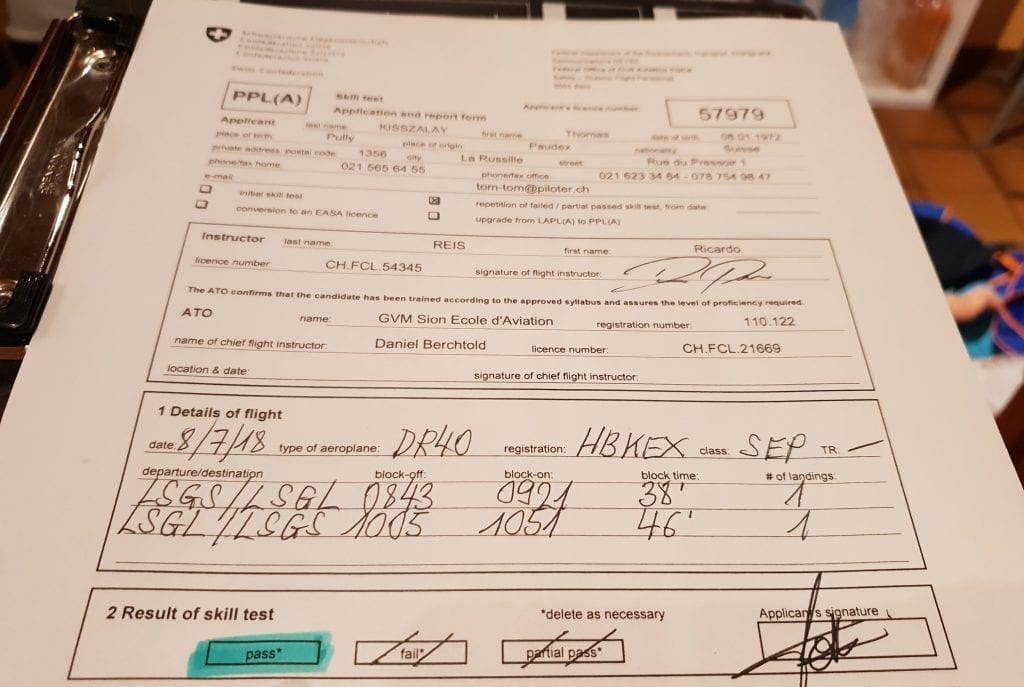 Schweizerische Eidgenossenschaft
Confédération suisse
Confederazione Svizzera
Swiss Confederation
Federal Department of the Environment, Transport, Energy and
Communications
Federal Office of Civil Aviation FOCA
Safety - Flight Personnel
PPL(A)
Skill test
Application and report form
Applicant's licence number
57979
Applicant last name: KISSZALAY first name: Thomas date of birth: 08.01.1972
place of birth: Pully place of origin: Paudex nationality: Suisse
private address, postal code: 1356 city La Russille street: Rue du Pressoir 1
phone/fax home: 021 565 64 55 phone/fax office: 021 623 34 64 - 078 754 98 47
e-mail: tom-tom@piloter.ch
initial skill test repetition of failed / partial passed skill test, from date:
conversion to an EASA licence upgrade from LAPL(A) to PPL(A)
Instructor last name: REIS first name: Ricardo
licence number: CH.FCL.54345 signature of flight instructor:
The ATO confirms that the candidate has been trained according to the approved syllabus and assures the level of proficiency required.
ATO name: GVM Sion Ecole d'Aviation registration number: 110.122
name of chief flight instructor: Daniel Berchtold licence number: CH.FCL.21669
location & date: signature of chief flight instructor:
1 Details of flight
date: 8/7/18 type of aeroplane: DR40 registration: HBKEX class: SEP TR: —
departure/destination block-off: block-on: block time: # of landings:
LSGS/LSGL 0843 0921 38' 1
LSGL/LSGS 1005 1051 46' 1
2 Result of skill test *delete as necessary Applicant's signature
pass* fail* partial pass*